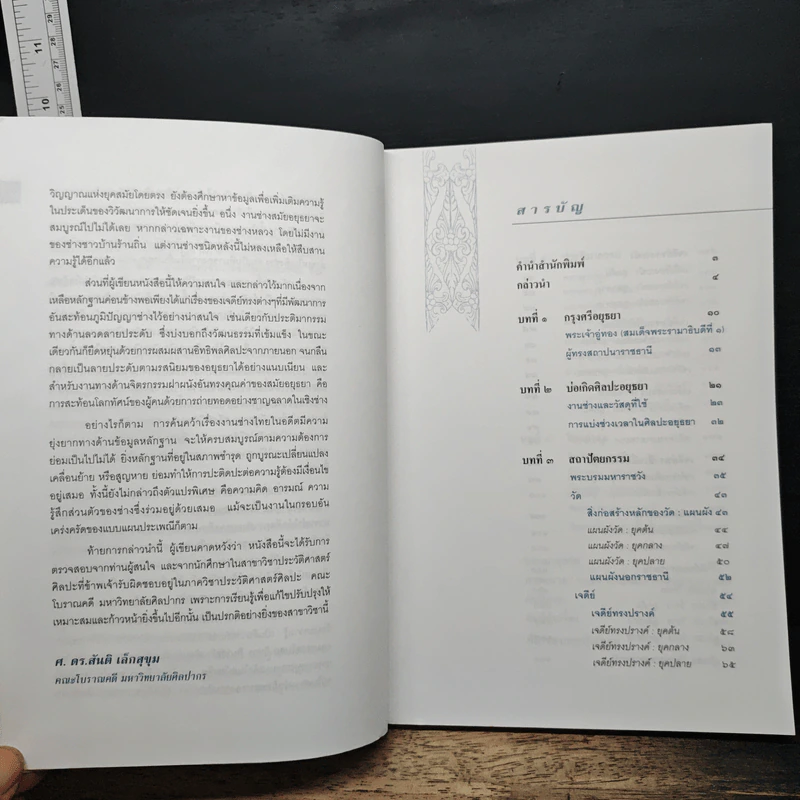 วิญญาณแห่งยุคสมัยโดยตรง ยังต้องศึกษาหาข้อมูลเพื่อเพิ่มเติมความรู้
ในประเด็นของวิวัฒนาการให้ชัดเจนยิ่งขึ้น อนึ่ง งานช่างสมัยอยุธยาจะ
สมบูรณ์ไปไม่ได้เลย หากกล่าวเฉพาะงานของช่างหลวง โดยไม่มีงาน
ของช่างชาวบ้านร้านถิ่น แต่งานช่างชนิดหลังนี้ไม่หลงเหลือให้สืบสาน
ความรู้ได้อีกแล้ว
ส่วนที่ผู้เขียนหนังสือนี้ให้ความสนใจ และกล่าวไว้มากเนื่องจาก
เหลือหลักฐานค่อนข้างพอเพียงได้แก่เรื่องของเจดีย์ทรงต่างๆที่มีพัฒนาการ
อันสะท้อนภูมิปัญญาช่างไว้อย่างน่าสนใจ เช่นเดียวกับประติมากรรม
ทางด้านลวดลายประดับ ซึ่งบ่งบอกถึงวัฒนธรรมที่เข้มแข็ง ในขณะ
เดียวกันก็ยืดหยุ่นด้วยการผสมผสานอิทธิพลศิลปะจากภายนอก จนกลืน
กลายเป็นลายประดับตามรสนิยมของอยุธยาได้อย่างแนบเนียน และ
สำหรับงานทางด้านจิตรกรรมฝาผนังอันทรงคุณค่าของสมัยอยุธยา คือ
การสะท้อนโลกทัศน์ของผู้คนด้วยการถ่ายทอดอย่างชาญฉลาดในเชิงช่าง
อย่างไรก็ตาม การค้นคว้าเรื่องงานช่างไทยในอดีตมีความ
ยุ่งยากทางด้านข้อมูลหลักฐาน จะให้ครบสมบูรณ์ตามความต้องการ
ย่อมเป็นไปไม่ได้ ยิ่งหลักฐานที่อยู่ในสภาพชำรุด ถูกบูรณะเปลี่ยนแปลง
เคลื่อนย้าย หรือสูญหาย ย่อมทำให้การปะติดปะต่อความรู้ต้องมีเงื่อนไข
อยู่เสมอ ทั้งนี้ยังไม่กล่าวถึงตัวแปรพิเศษ คือความคิด อารมณ์ ความ
รู้สึกส่วนตัวของช่างซึ่งร่วมอยู่ด้วยเสมอ แม้จะเป็นงานในกรอบอัน
เคร่งครัดของแบบแผนประเพณีก็ตาม
ท้ายการกล่าวนำนี้ ผู้เขียนคาดหวังว่า หนังสือนี้จะได้รับการ
ตรวจสอบจากท่านผู้สนใจ และจากนักศึกษาในสาขาวิชาประวัติศาสตร์
ศิลปะที่ข้าพเจ้ารับผิดชอบอยู่ในภาควิชาประวัติศาสตร์ศิลปะ คณะ
โบราณคดี มหาวิทยาลัยศิลปากร เพราะการเรียนรู้เพื่อแก้ไขปรับปรุงให้
เหมาะสมและก้าวหน้ายิ่งขึ้นไปอีกนั้น เป็นปรกติอย่างยิ่งของสาขาวิชานี้
ศ. ดร.สันติ เล็กสุขุม
คณะโบราณคดี มหาวิทยาลัยศิลปากร
สารบัญ
คำนำสำนักพิมพ์ ๓
กล่าวนำ ๔
บทที่ ๑ กรุงศรีอยุธยา ๑๐
พระเจ้าอู่ทอง (สมเด็จพระรามาธิบดีที่ ๑)
ผู้ทรงสถาปนาราชธานี ๑๓
บทที่ ๒ บ่อเกิดศิลปะอยุธยา ๒๑
งานช่างและวัสดุที่ใช้ ๒๓
การแบ่งช่วงเวลาในศิลปะอยุธยา ๓๒
บทที่ ๓ สถาปัตยกรรม ๓๔
พระบรมมหาราชวัง ๓๕
วัด ๔๓
สิ่งก่อสร้างหลักของวัด : แผนผัง ๔๓
แผนผังวัด : ยุคต้น ๔๔
แผนผังวัด : ยุคกลาง ๔๗
แผนผังวัด : ยุคปลาย ๕๐
แผนผังนอกราชธานี ๕๒
เจดีย์ ๕๔
เจดีย์ทรงปรางค์ ๕๕
เจดีย์ทรงปรางค์ : ยุคต้น ๕๘
เจดีย์ทรงปรางค์ : ยุคกลาง ๖๓
เจดีย์ทรงปรางค์ : ยุคปลาย ๖๕
11
10
29
28
27
26
25